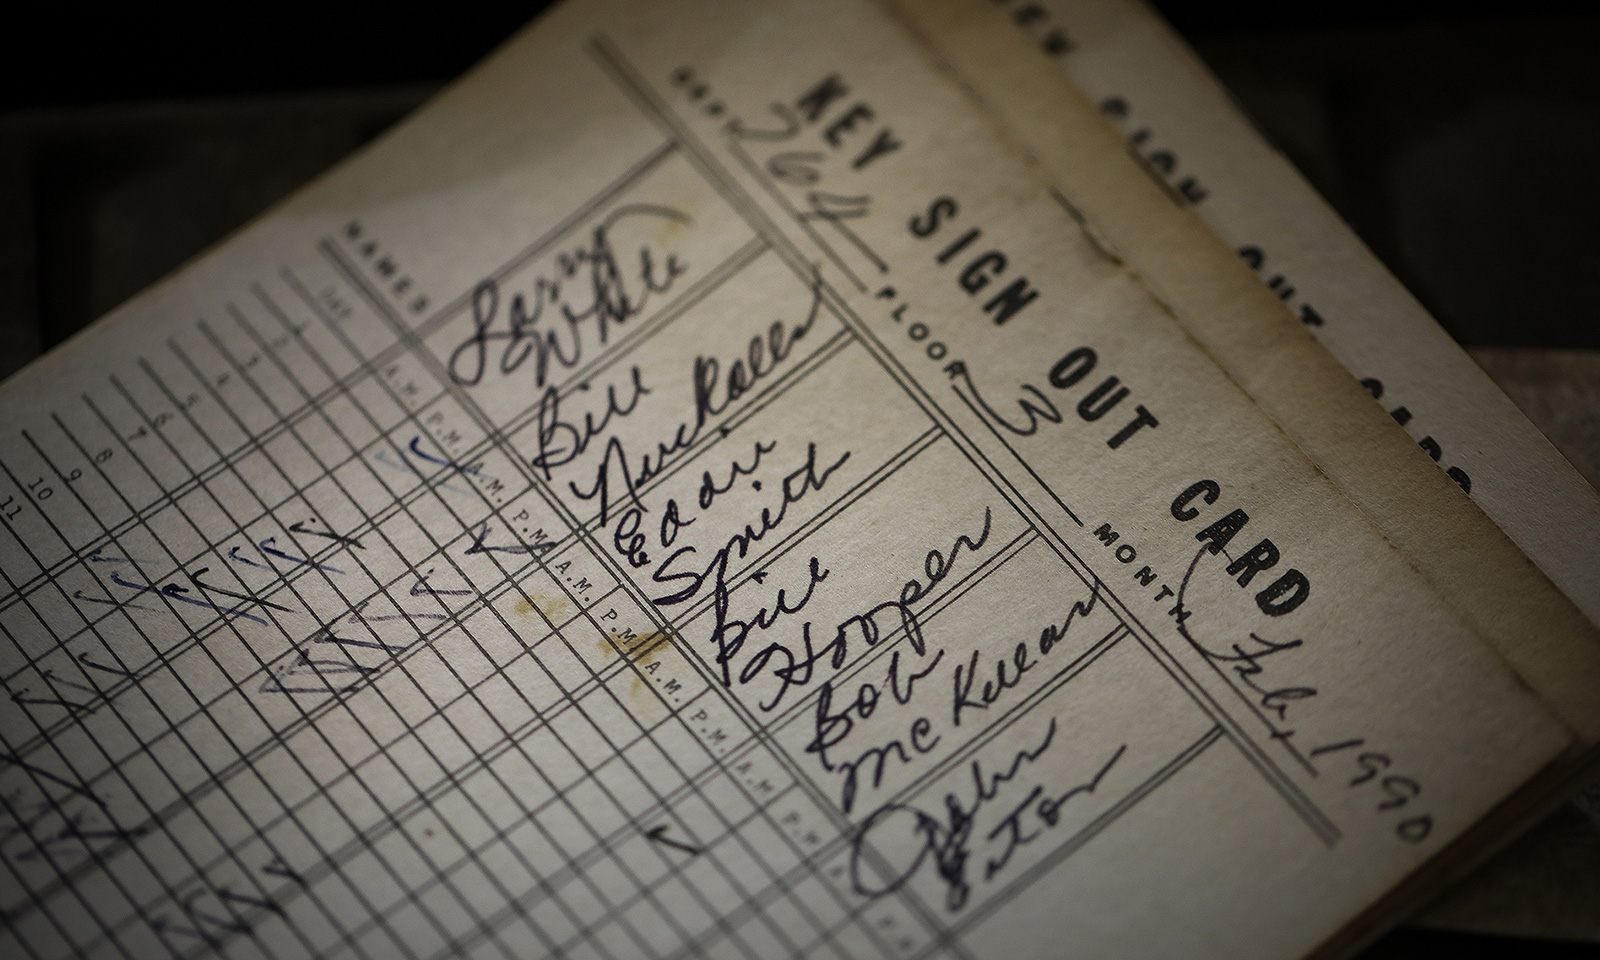 KEY SIGN OUT CARD
DEPT. 264 FLOOR 3 MONTH Feb, 1990
NAMES
Larry
White
Bill
Nuckolls
Eddie
Smith
Bill
Hooper
Bob
McKellar
John
Eaton
1st A.M. P.M. A.M. P.M. A.M. P.M. A.M. P.M. A.M. P.M.
2
3
4
5
6
7
8
9
10
11
KEY SIGN OUT CARD